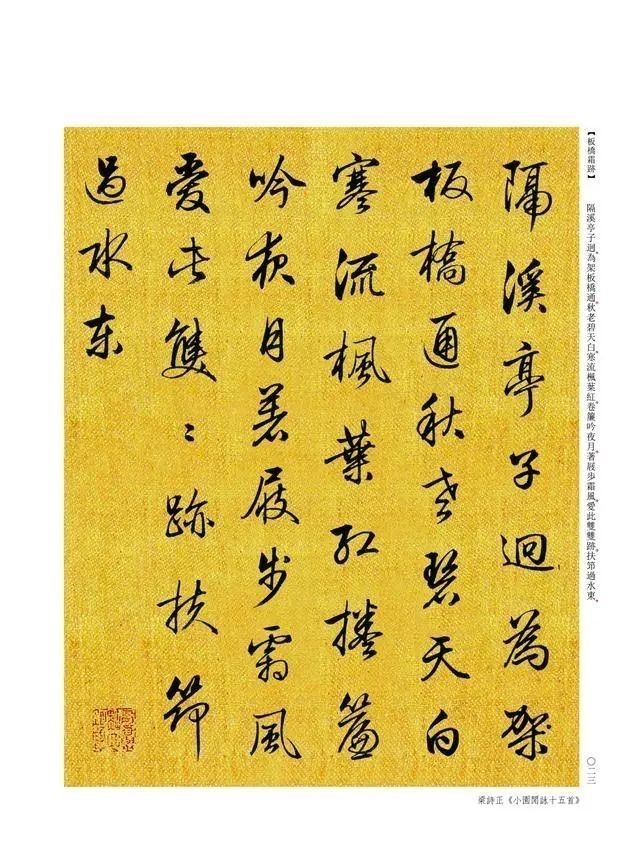 隔溪亭子迥為架
板橋通秋老碧天白
寒流楓葉紅捲簾
吟夜月著屐步霜風
愛此雙〻跡扶笻
過水东
【板橋霜跡】
隔溪亭子迥。為架板橋通。秋老碧天白。寒流楓葉紅。卷簾吟夜月。著屐步霜風。愛此雙雙跡。扶笻過水東。
〇二三
梁詩正《小園閒詠十五首》